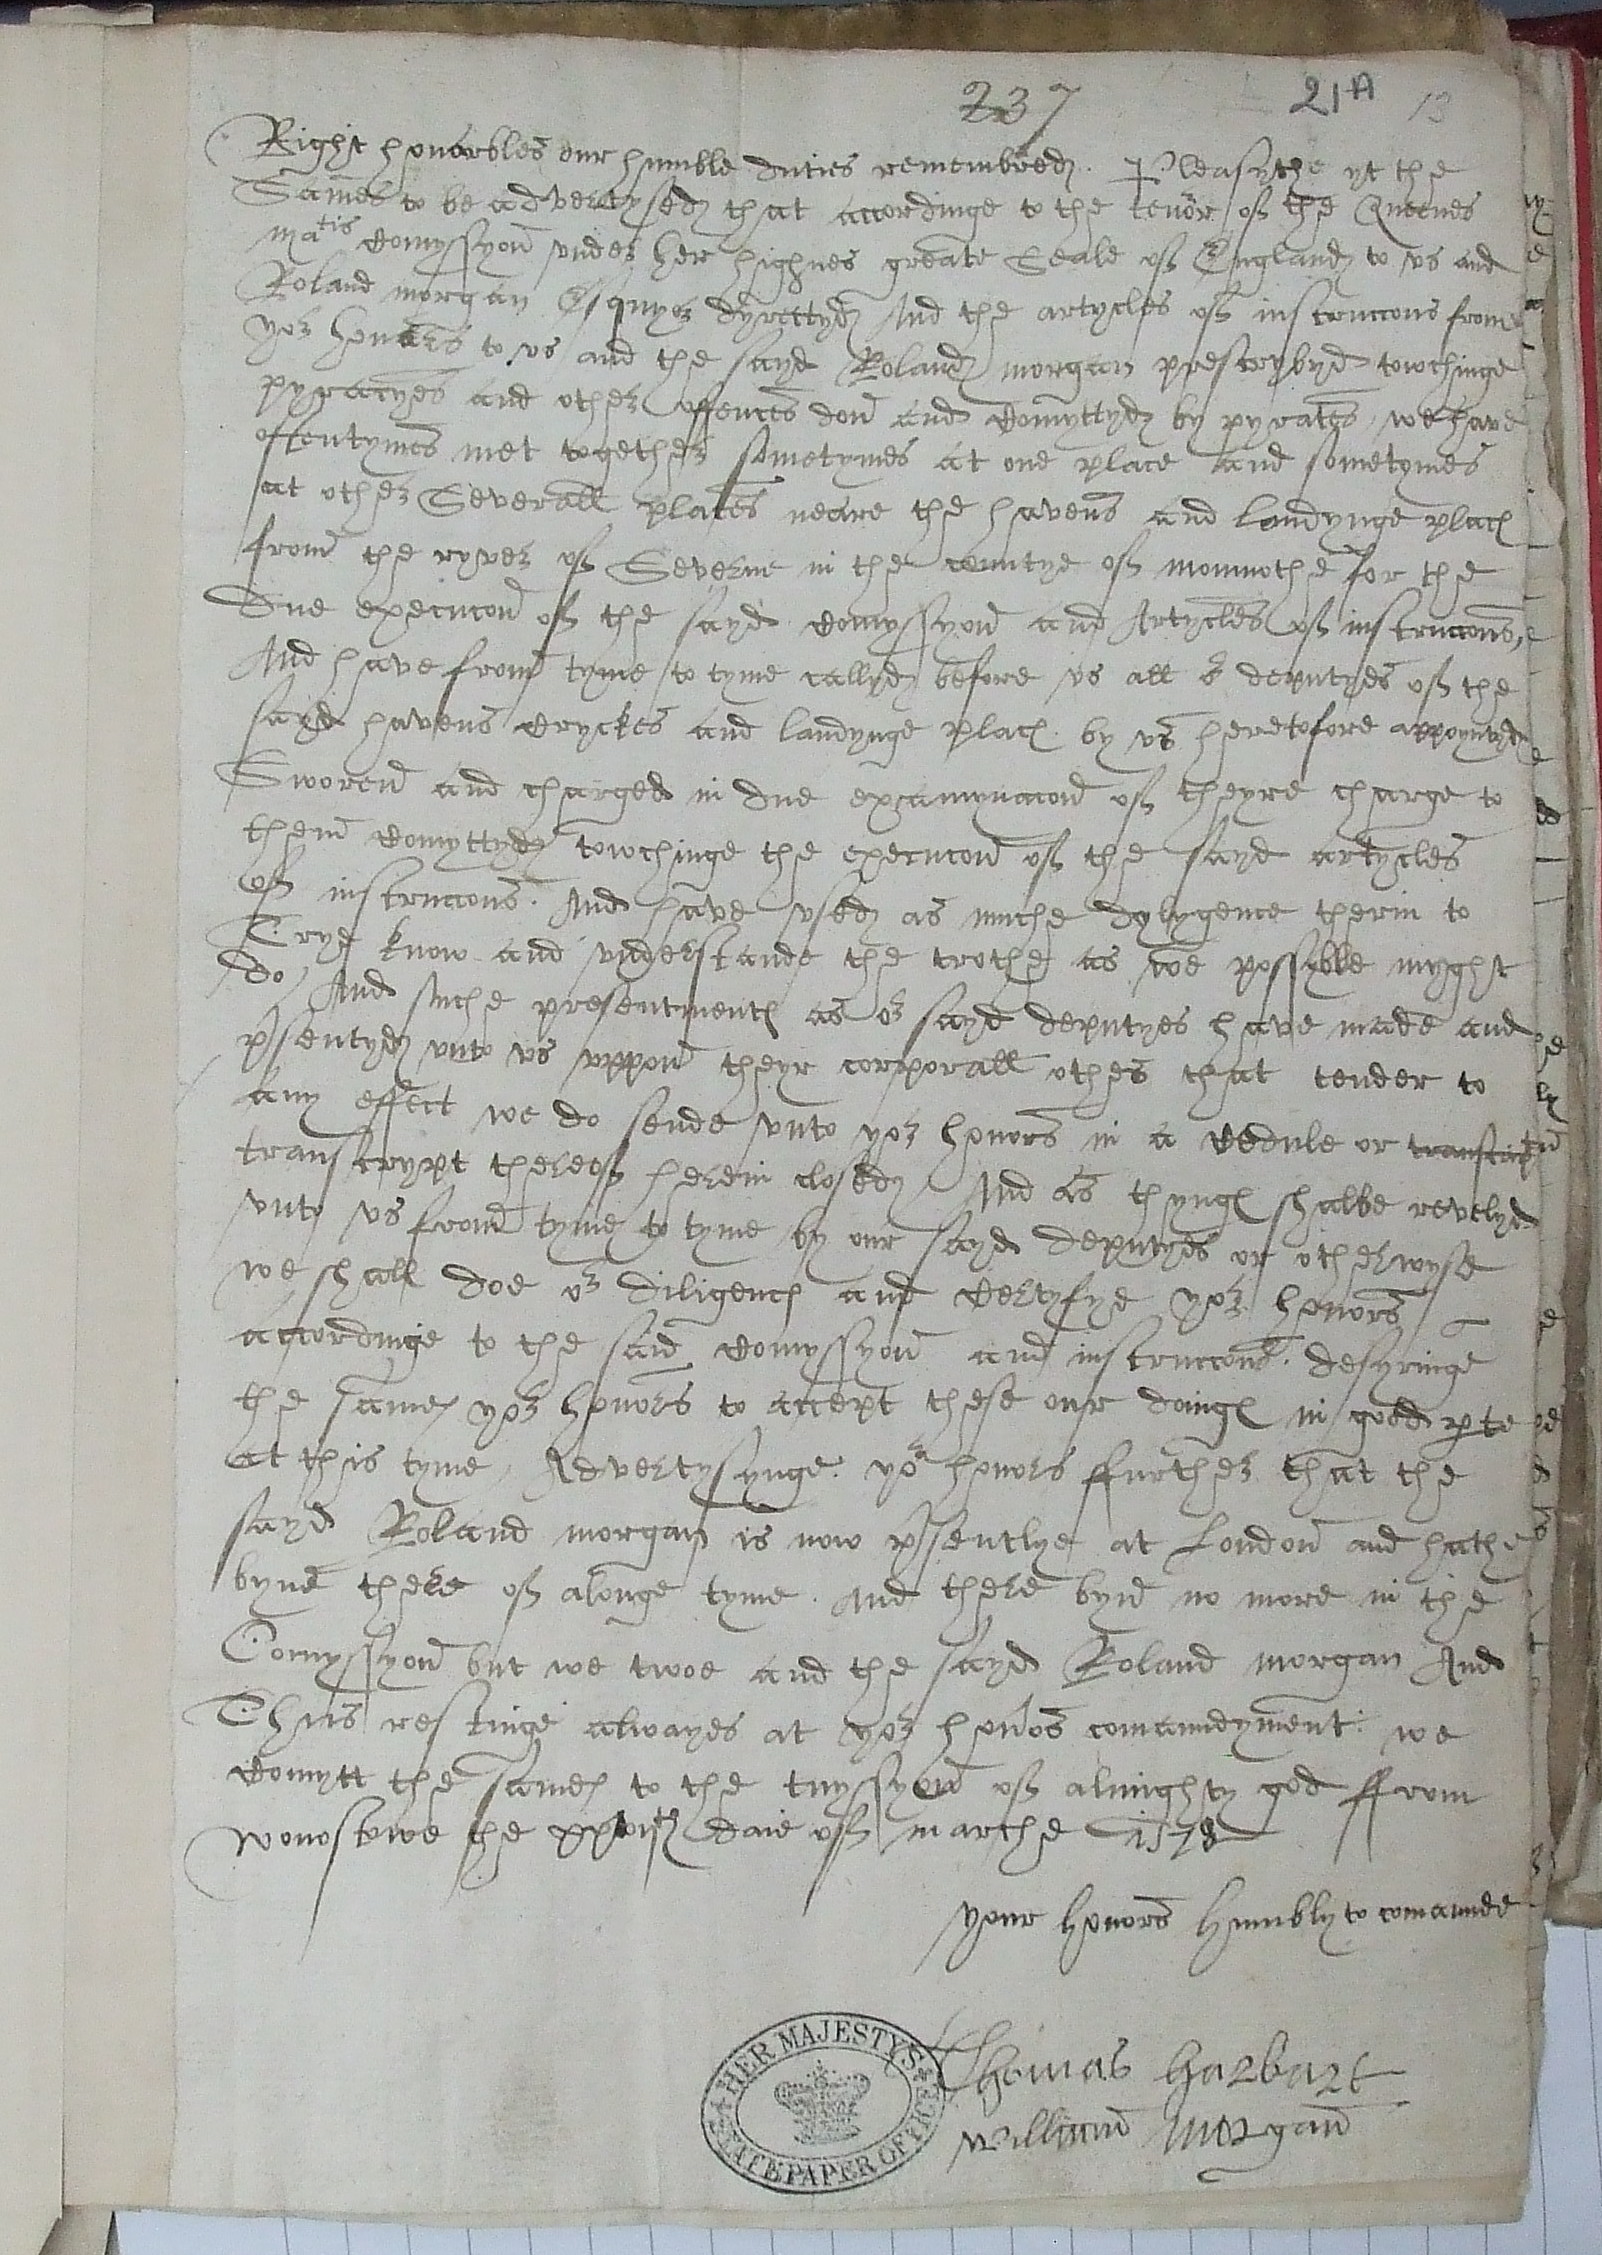 237 21A 13
Right honorbles our humble duties remembred. Pleasythe yt the
Same to be advertysed that accordinge to the tenor of the Queenes
matis Comyssyon under her highnes greate Seale of England to us and
Roland morgan Esquyer dyrectyd And the artycles of instruccons from
yor honors to us and the sayd Roland morgan prescrybyd towchinge
pyracyes and other offences don and Comyttyd by pyrates, we have
oftentymes met together sometymes at one place and sometymes
at other Severall places neare the havens and landynge places
from the ryver of Severne in the countye of monmothe for the
Due execucon of the sayd Comyssyon and Artycles of instruccons,
And have from tyme to tyme callyd before us all or deputyes of the
sayd havens Cryckes and landynge places by us heretofore appoyntyd
Sworen and charged in due examynacon of theyre charge to
them Comyttyd towchinge the execucon of the sayd artycles
of instruccons. And have used as muche dylygence therin to
Trye know and understande the trothe as we possyble myght
do, And suche presentmentes as or sayd deputyes have made and
psentyd unto us uppon theyr corporall othes that tender to
any effect we do sende unto yor honors in a Cedule or
transcrypt therof herein closed, And as thynges shalbe revelyd
unto us from tyme to tyme by our sayd deputyes or otherwyse
we shall doe or diligence and Certyfye yor honors
accordinge to the said Comyssyon and instruccons. desyringe
the same yor honors to accept these our doinges in good pte
at this tyme, Advertysynge yor honors further that the
sayd Roland morgan is now psentlye at London and hathe
byne there of a longe tyme. And there byn no more in the
Comyssyon but we twoe and the sayd Roland morgan And
Thus restinge alwayes at yor honors comaundyment: we
Comytt the same to the tuyssyon of almighty god ffrom
wonastowe the daie of marche 1578
your honors humbly to comaunde
Thomas Harbart
William Morgan
HER MAJESTY'S STATE PAPER OFFICE